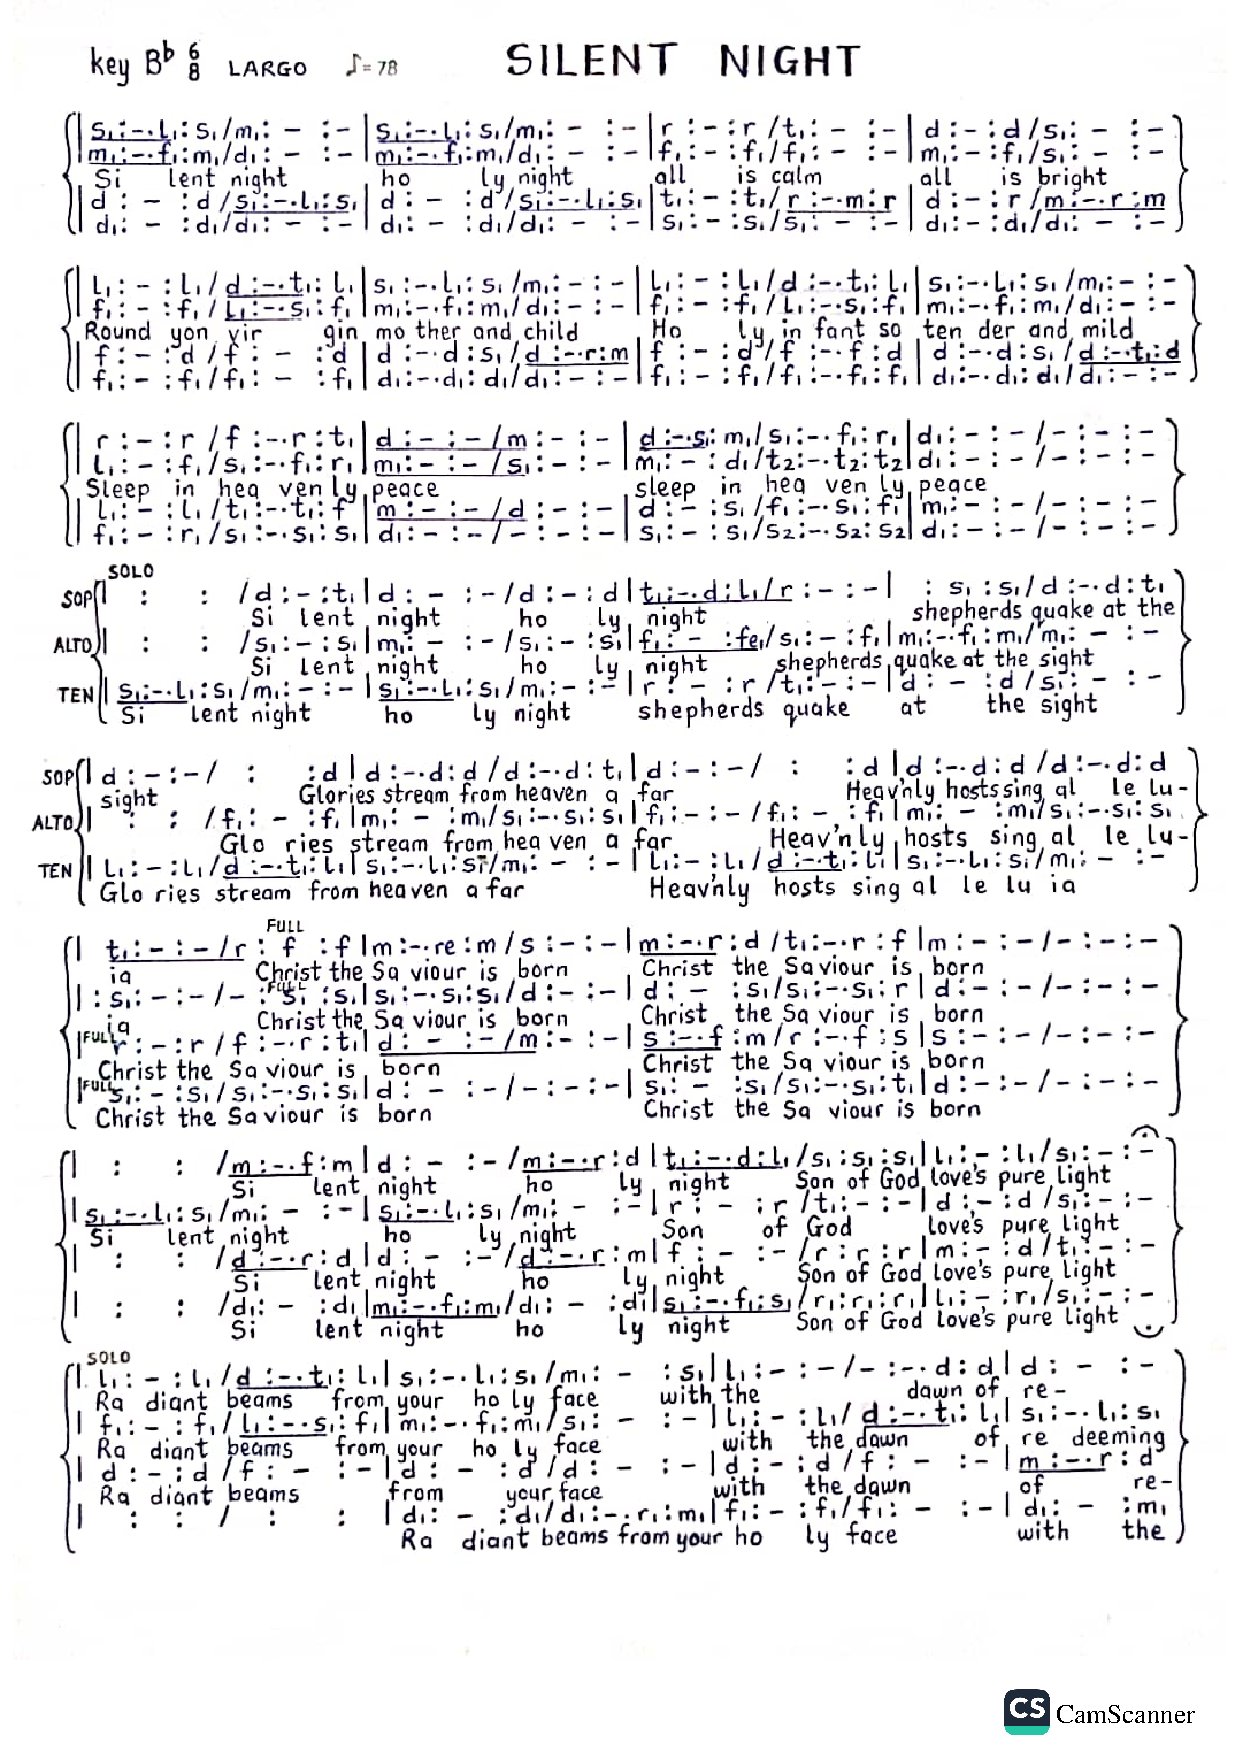 key B♭ 6/8 LARGO ♪=78 SILENT NIGHT
s₁:-.l₁:s₁/m₁:- :-|s₁:-.l₁:s₁/m₁:- :-|r :- :r /t₁:- :-|d :- :d/s₁:- :-
m₁:-.f₁:m₁/d₁:- :-|m₁:-.f₁:m₁/d₁:- :-|f₁:- :f₁/f₁:- :-|m₁:- :f₁/s₁:- :-
Si lent night ho ly night all is calm all is bright
d :- :d /s₁:-.l₁:s₁|d :- :d /s₁:-.l₁:s₁|t₁:- :t₁/r :-.m:r|d :- :r /m :-.r :m
d₁:- :d₁/d₁:- :-|d₁:- :d₁/d₁:- :-|s₁:- :s₁/s₁:- :-|d₁:- :d₁/d₁:- :-
l₁:- :l₁/d :-.t₁:l₁|s₁:-.l₁:s₁/m₁:- :-|l₁:- :l₁/d :-.t₁:l₁|s₁:-.l₁:s₁/m₁:- :-
f₁:- :f₁/l₁:-.s₁:f₁|m₁:-.f₁:m₁/d₁:- :-|f₁:- :f₁/l₁:-.s₁:f₁|m₁:-.f₁:m₁/d₁:- :-
Round yon vir gin mo ther and child Ho ly in fant so ten der and mild
f :- :d /f :- :d|d :-.d:s₁/d :-.r:m|f :- :d /f :-.f :d|d :-.d:s₁/d :-.t₁:d
f₁:- :f₁/f₁:- :f₁|d₁:-.d₁:d₁/d₁:- :-|f₁:- :f₁/f₁:-.f₁:f₁|d₁:-.d₁:d₁/d₁:- :-
r :- :r /f :-.r :t₁|d :- :- /m :- :-|d :-.s₁:m₁/s₁:-.f₁:r₁|d₁:- :- /- :- :-
l₁:- :f₁/s₁:-.f₁:r₁|m₁:- :- /s₁:- :-|m₁:- :d₁/t₂:-.t₂:t₂|d₁:- :- /- :- :-
Sleep in hea ven ly peace sleep in hea ven ly peace
l₁:- :l₁/t₁:-.t₁:f|m :- :- /d :- :-|d :- :s₁/f₁:-.s₁:f₁|m₁:- :- /- :- :-
f₁:- :r₁/s₁:-.s₁:s₁|d₁:- :- /- :- :-|s₁:- :s₁/s₂:-.s₂:s₂|d₁:- :- /- :- :-
SOLO
SOP : : /d :- :t₁|d :- :- /d :- :d|t₁:-.d:l₁/r :- :-| : s₁ :s₁/d :-.d:t₁
Si lent night ho ly night shepherds quake at the
ALTO : : /s₁:- :s₁|m₁:- :- /s₁:- :s₁|f₁:- :fe₁/s₁:- :f₁|m₁:-.f₁:m₁/m₁:- :-
Si lent night ho ly night shepherds quake at the sight
TEN s₁:-.l₁:s₁/m₁:- :-|s₁:-.l₁:s₁/m₁:- :-|r :- :r /t₁:- :-|d :- :d /s₁:- :-
Si lent night ho ly night shepherds quake at the sight
SOP d :- :- / : :d|d :-.d:d /d :-.d:t₁|d :- :- / : :d|d :-.d:d /d :-.d:d
sight Glories stream from heaven a far Heav'nly hosts sing al le lu-
ALTO : : /f₁:- :f₁|m₁:- :m₁/s₁:-.s₁:s₁|f₁:- :- /f₁:- :f₁|m₁:- :m₁/s₁:-.s₁:s₁
Glo ries stream from hea ven a far Heav'n ly hosts sing al le lu-
TEN l₁:- :l₁/d :-.t₁:l₁|s₁:-.l₁:s₁/m₁:- :-|l₁:- :l₁/d :-.t₁:l₁|s₁:-.l₁:s₁/m₁:- :-
Glo ries stream from heaven a far Heav'nly hosts sing al le lu ia
FULL
t₁:- :- /r : f :f|m :-.re:m /s :- :-|m :-.r:d /t₁:-.r :f|m :- :- /- :- :-
ia Christ the Sa viour is born Christ the Sa viour is born
FULL
: s₁:- :- /- : s₁ :s₁|s₁:-.s₁:s₁/d :- :-|d :- :s₁/s₁:-.s₁:r|d :- :- /- :- :-
ia Christ the Sa viour is born Christ the Sa viour is born
FULL r :- :r /f :-.r :t₁|d :- :- /m :- :-|s :-.f :m /r :-.f :s|s :- :- /- :- :-
Christ the Sa viour is born Christ the Sa viour is born
FULL s₁:- :s₁/s₁:-.s₁:s₁|d :- :- /- :- :-|s₁:- :s₁/s₁:-.s₁:t₁|d :- :- /- :- :-
Christ the Sa viour is born Christ the Sa viour is born
: : /m :-.f:m|d :- :- /m :-.r:d|t₁:-.d:l₁/s₁:s₁:s₁|l₁:- :l₁/s₁:- :-
Si lent night ho ly night Son of God love's pure light
s₁:-.l₁:s₁/m₁:- :-|s₁:-.l₁:s₁/m₁:- :-|r :- :r /t₁:- :-|d :- :d /s₁:- :-
Si lent night ho ly night Son of God love's pure light
: : /d :-.r:d|d :- :- /d :-.r:m|f :- :- /r :r :r|m :- :d /t₁:- :-
Si lent night ho ly night Son of God love's pure light
: : /d₁:- :d₁|m₁:-.f₁:m₁/d₁:- :d₁|s₁:-.f₁:s₁/r₁:r₁:r₁|l₁:- :r₁/s₁:- :-
Si lent night ho ly night Son of God love's pure light
SOLO
l₁:- :l₁/d :-.t₁:l₁|s₁:-.l₁:s₁/m₁:- :s₁|l₁:- :- /- :-.d:d|d :- :-
Ra diant beams from your ho ly face with the dawn of re-
f₁:- :f₁/l₁:-.s₁:f₁|m₁:-.f₁:m₁/s₁:- :-|l₁:- :l₁/d :-.t₁:l₁|s₁:-.l₁:s₁
Ra diant beams from your ho ly face with the dawn of re deeming
d :- :d /f :- :-|d :- :d /d :- :-|d :- :d /f :- :-|m :-.r:d
Ra diant beams from your face with the dawn of re-
: : / : : |d₁:- :d₁/d₁:-.r₁:m₁|f₁:- :f₁/f₁:- :-|d₁:- :m₁
Ra diant beams from your ho ly face with the
CS CamScanner